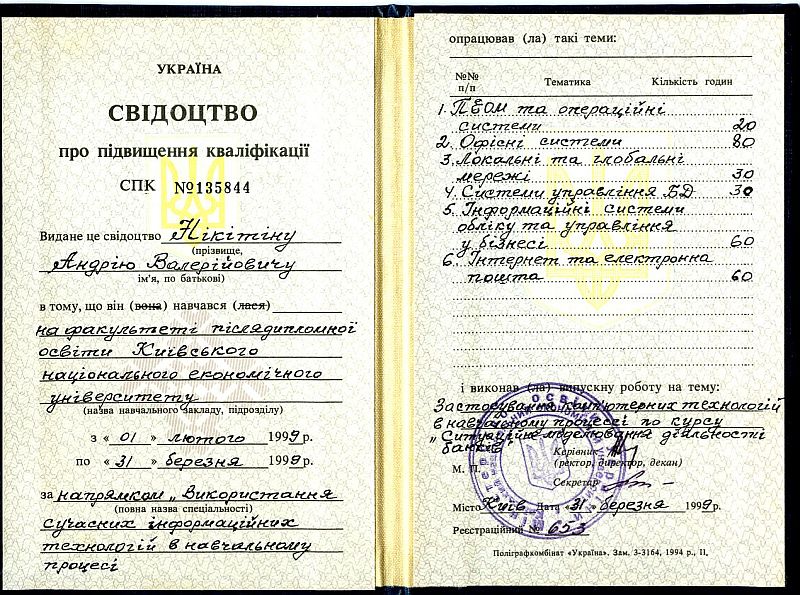 УКРАЇНА
СВІДОЦТВО
про підвищення кваліфікації
СПК №135844
Видане це свідоцтво Нікітіну
(прізвище,
Андрію Валерійовичу
ім'я, по батькові)
в тому, що він (вона) навчався (лася)
на факультеті післядипломної
освіти Київського
національного економічного
університету
(назва навчального закладу, підрозділу)
з « 01 » лютого 1999 р.
по « 31 » березня 1999 р.
за напрямком „Використання
(повна назва спеціальності)
сучасних інформаційних
технологій в навчальному
процесі
опрацював (ла) такі теми:
№№ п/п Тематика Кількість годин
1. ПЕОМ та операційні
системи 20
2. Офісні системи 80
3. Локальні та глобальні
мережі 30
4. Системи управління БД 30
5. Інформаційні системи
обліку та управління
у бізнесі 60
6. Інтернет та електронна
пошта 60
і виконав (ла) випускну роботу на тему:
Застосування комп'ютерних технологій
в навчальному процесі по курсу
„Ситуаційне моделювання діяльності
банків"
Керівник
(ректор, директор, декан)
М. П.
Секретар
Місто Київ Дата « 31 » березня 1999 р.
Реєстраційний № 653
Поліграфкомбінат «Україна». Зам. 3-3164, 1994 р., II.